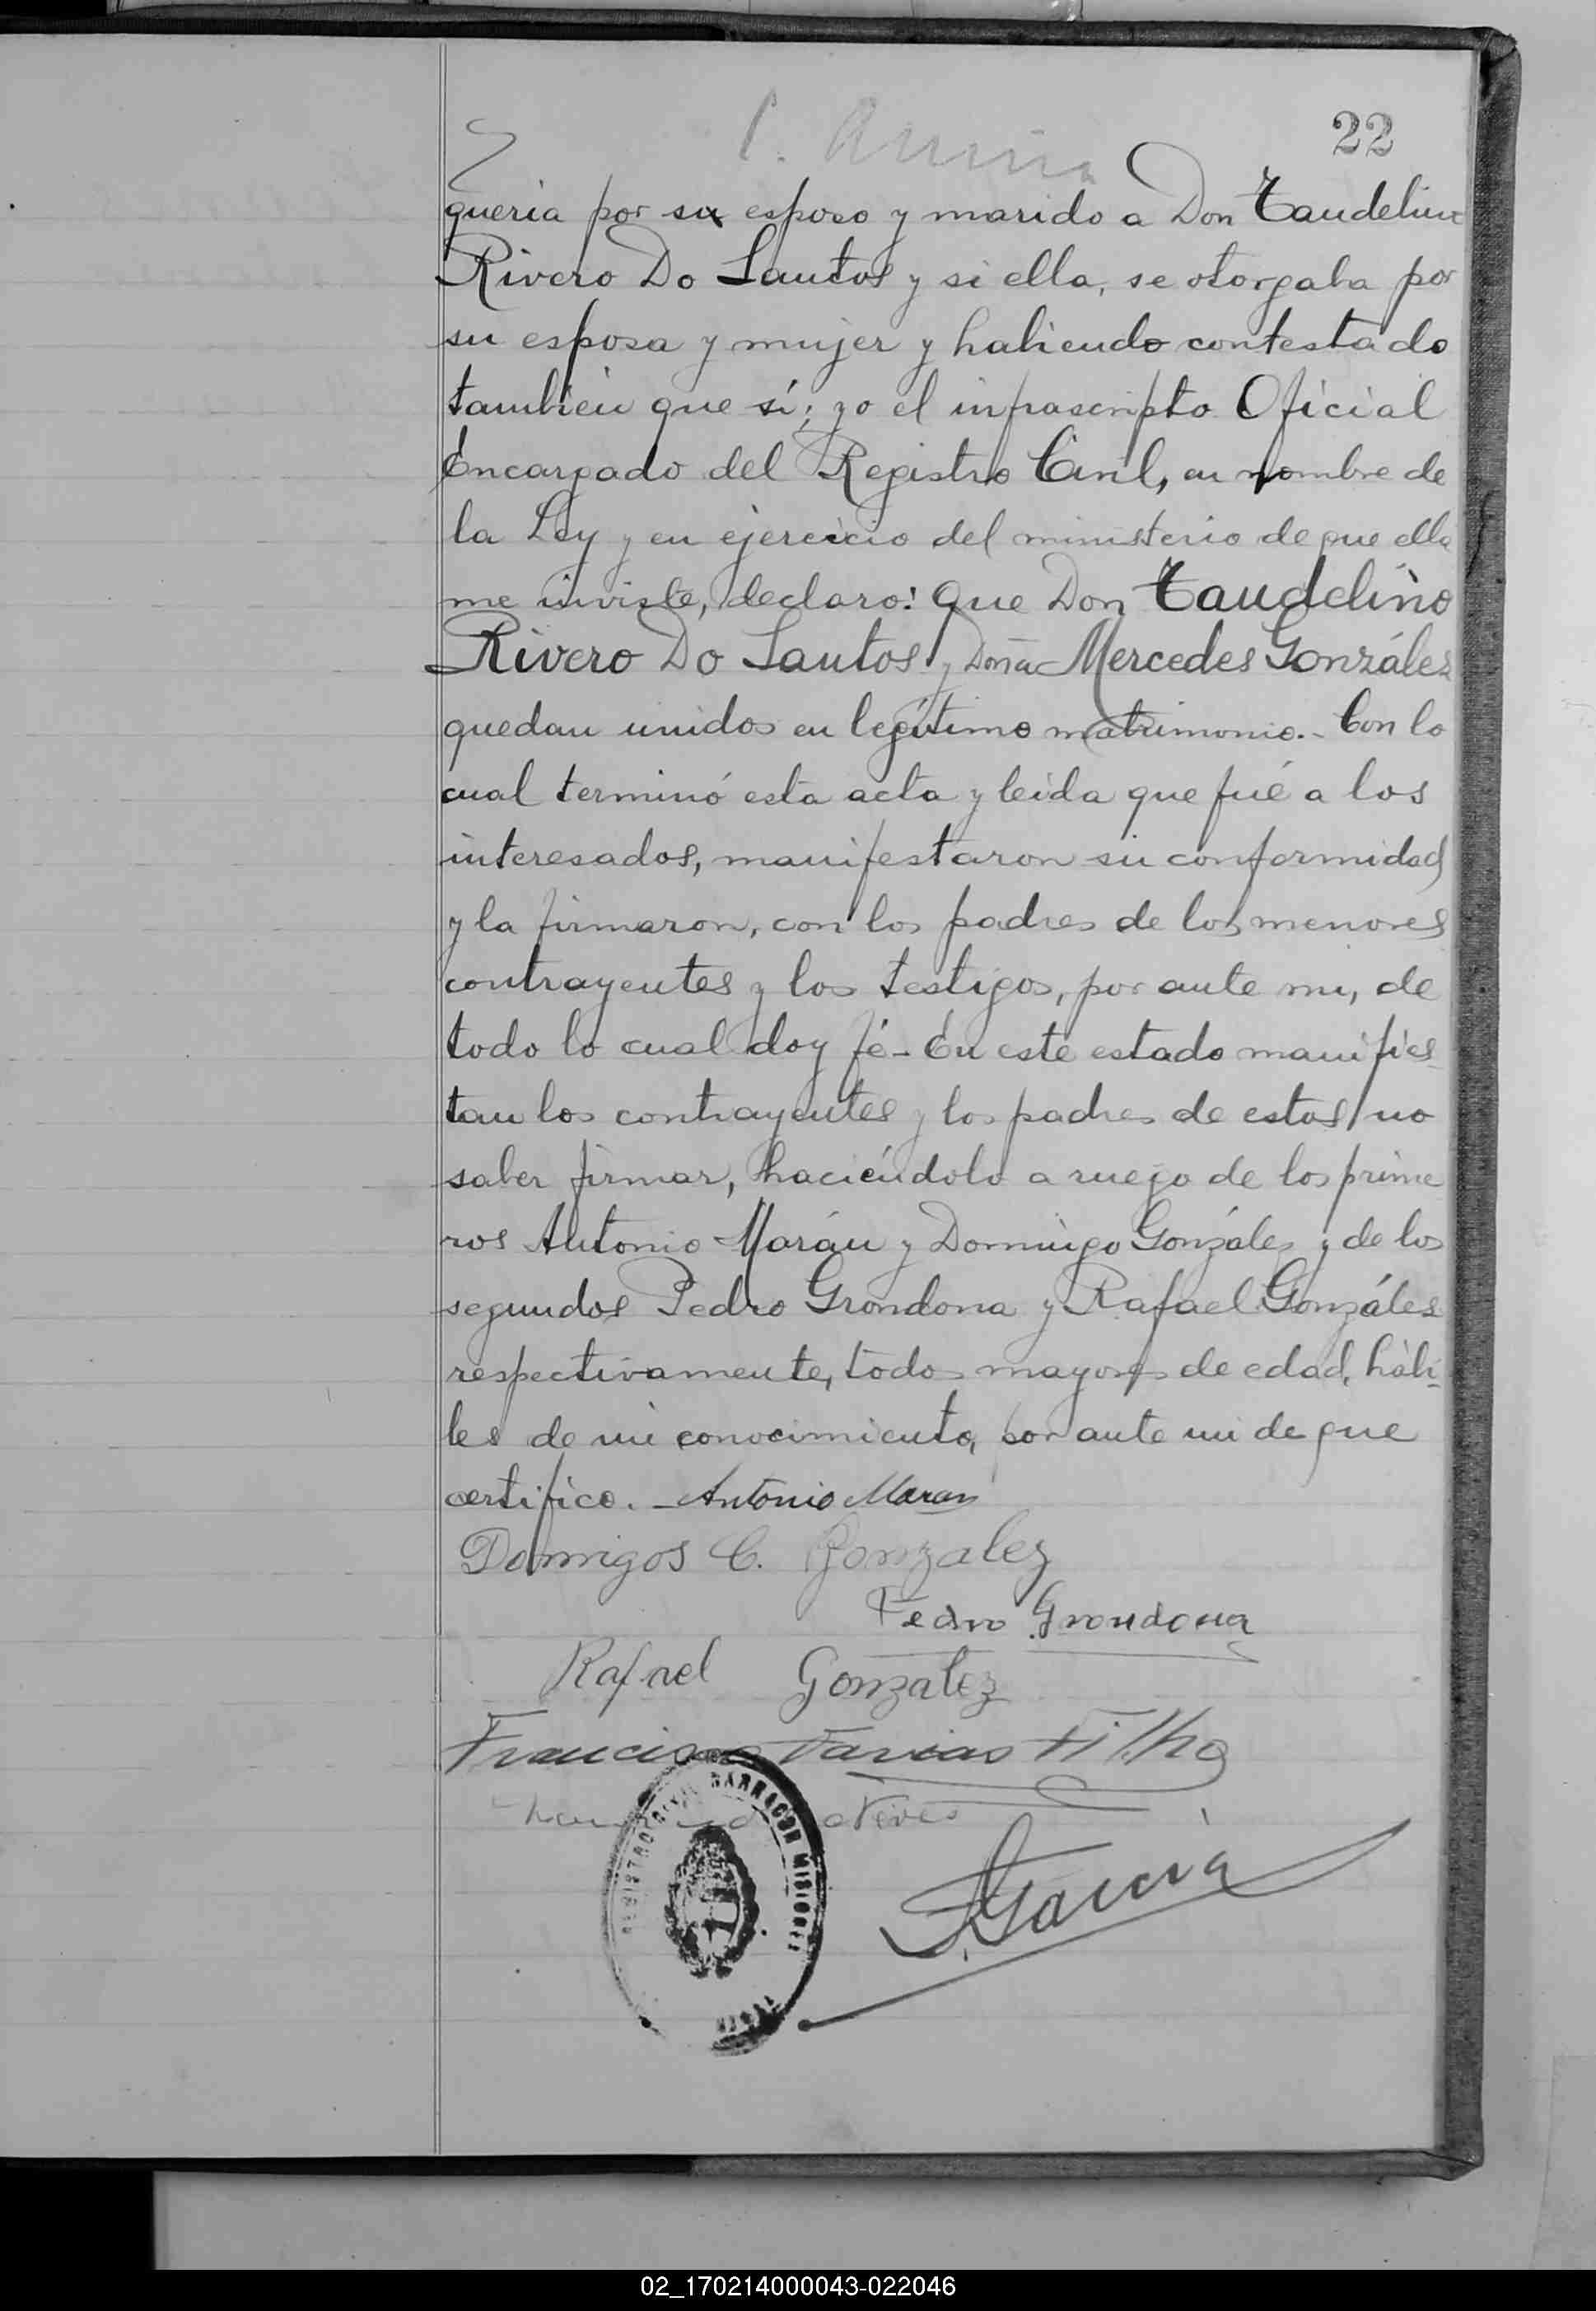 22
queria por su esposo y marido a Don Taudelino
Rivero Do Santos y si ella, se otorgaba por
su esposa y mujer y habiendo contestado
tambien que sí; yo el infrascripto Oficial
Encargado del Registro Civil, en nombre de
la Ley y en ejercicio del ministerio de que ella
me inviste, declaro: Que Don Taudelino
Rivero Do Santos y Doña Mercedes Gonzáles
quedan unidos en legítimo matrimonio.- Con lo
cual terminó esta acta y leida que fué a los
interesados, manifestaron su conformidad
y la firmaron, con los padres de los menores
contrayentes y los testigos, por ante mi, de
todo lo cual doy fé - En este estado manifies-
tan los contrayentes y los padres de estos no
saber firmar, haciéndolo a ruego de los prime
ros Antonio Marán y Domingo Gonzáles y de los
segundos Pedro Grondona y Rafael Gonzáles
respectivamente, todos mayores de edad, hábi-
les de mi conocimiento, por ante mi de que
certifico. - Antonio Maran
Domigos C. Gonzalez
Pedro Grondona
Rafael Gonzalez
Francisco Farias Filho
Neves
REGISTRO CIVIL BARRACON MISIONES
Garcia
02_170214000043-022046